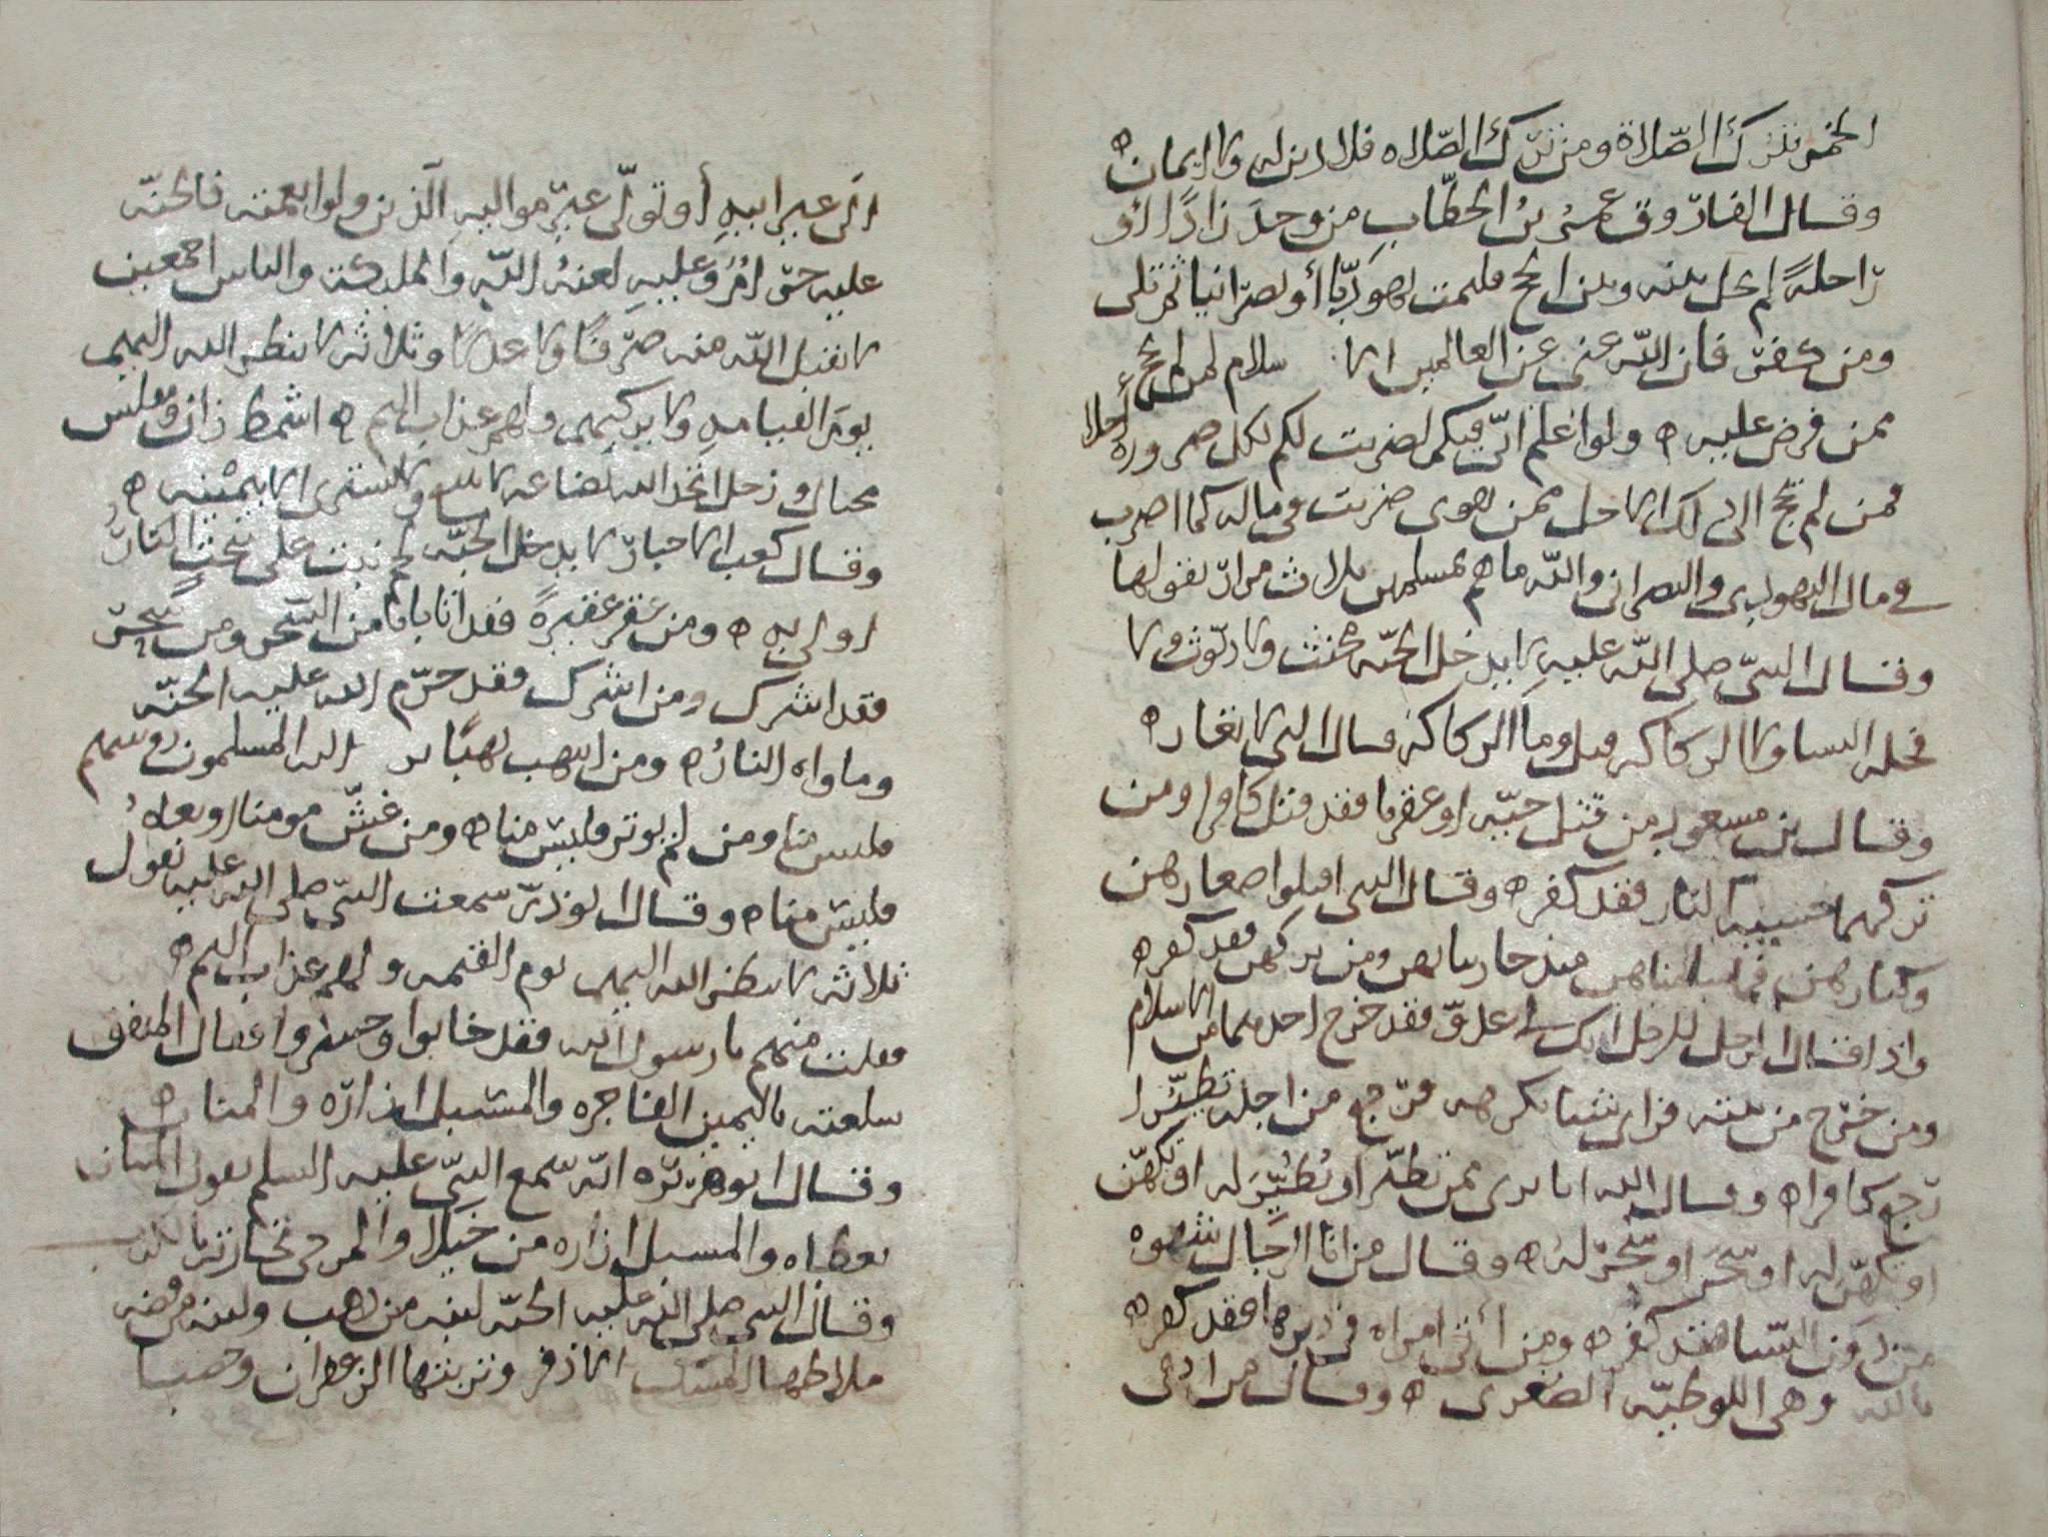 الخمر ترك الصلاة ومن ترك الصلاه فلا دين له ولا ايمان ه
وقال الفاروق عمر بن الخطاب من وجد زادا او
راحلة لم يحل بينه وبين الحج فليمت يهوديا أو نصرانيا ثم تلى
ومن كفر فان الله غني عن العالمين الا سلام لمن لم يحج
ممن فرض عليه ه ولو اعلم اني فيكم لضربت لكم لكل صرورة أجلا
فمن لم يحج الى ذلك الاجل ممن يهوى ضربت في ماله كما اضرب
في مال اليهودي والنصراني والله ما هم بمسلمين ثلاث مرار يقولها
وقال النبي صلى الله عليه لا يدخل الجنه مخنث ولا ديوث ولا
فحله النسا ولا الركاكه قيل وما الركاكه قال التي لا تغار ه
وقال بن مسعود من قتل حيه او عقربا فقد قتل كافرا ومن
تركهما خشية النار فقد كفر ه وقال النبي اقتلوا صغارهن
وكبارهن فما سالمناهن منذ حاربناهن ومن تركهن فقد كفر ه
واذا قال الرجل للرجل انك لي عدو فقد خرج احدهما من الاسلام
ومن خرج من بيته فراى شيا يكرهه فرجع من اجله تطيرا
رجع كافرا ه وقال الله انا بري ممن تطير او تُطُيِّر له او تكهن
او تكهن له او سحر او سحر له ه وقال من اتا الرجال شهوه
من دون النسا فقد كفر ه ومن أتى امراه في دبرها فقد كفر ه
بالله وهي اللوطيه الصغرى ه وقال من ادعى
الى غير ابيه أو تولى غير مواليه الذين ولوا نعمته فالجنه
عليه حرام وعليه لعنة الله والمليكة والناس اجمعين
لا يقبل الله منه صرفا ولا عدلا وثلاثه لا ينظر الله اليهم
يوم القيامه ولا يزكيهم ولهم عذاب اليم ه اشمط زان ومفلس
مختال ورجل اتخذ الله بضاعه لا يبيع ولا يشترى الا بيمينه ه
وقال كعب الاحبار لا يدخل الجنه لحم نبت على سُحت النار
اولى به ه ومن عقر عقيرة فقد اتا بابا من السحر ومن سحر
فقد اشرك ومن اشرك فقد حرم الله عليه الجنه
وماواه النار ه ومن انتهب نهبا ير الله المسلمون روسهم
فليس منا ومن لم يوتر فليس منا ه ومن غش مومنا او
فليس منا ه وقال ابو ذر سمعت النبي صلى الله عليه يقول
ثلاثه لا ينظر الله اليهم يوم القيمه ولهم عذاب اليم ه
فقلت منهم يا رسول الله فقد خابوا وخسروا فقال المنفق
سلعته باليمين الفاجره والمسبل ازاره والمنان ه
وقال ابو هريره انه سمع النبي عليه السلم يقول المنان
بعطاه والمسبل ازاره من خيلا والمرجي تجارته بالكذب
وقال النبي صلى الله عليه الجنه لبنه من ذهب ولبنه من فضه
ملاطها المسك الاذفر وتربتها الزعفران وحصبا